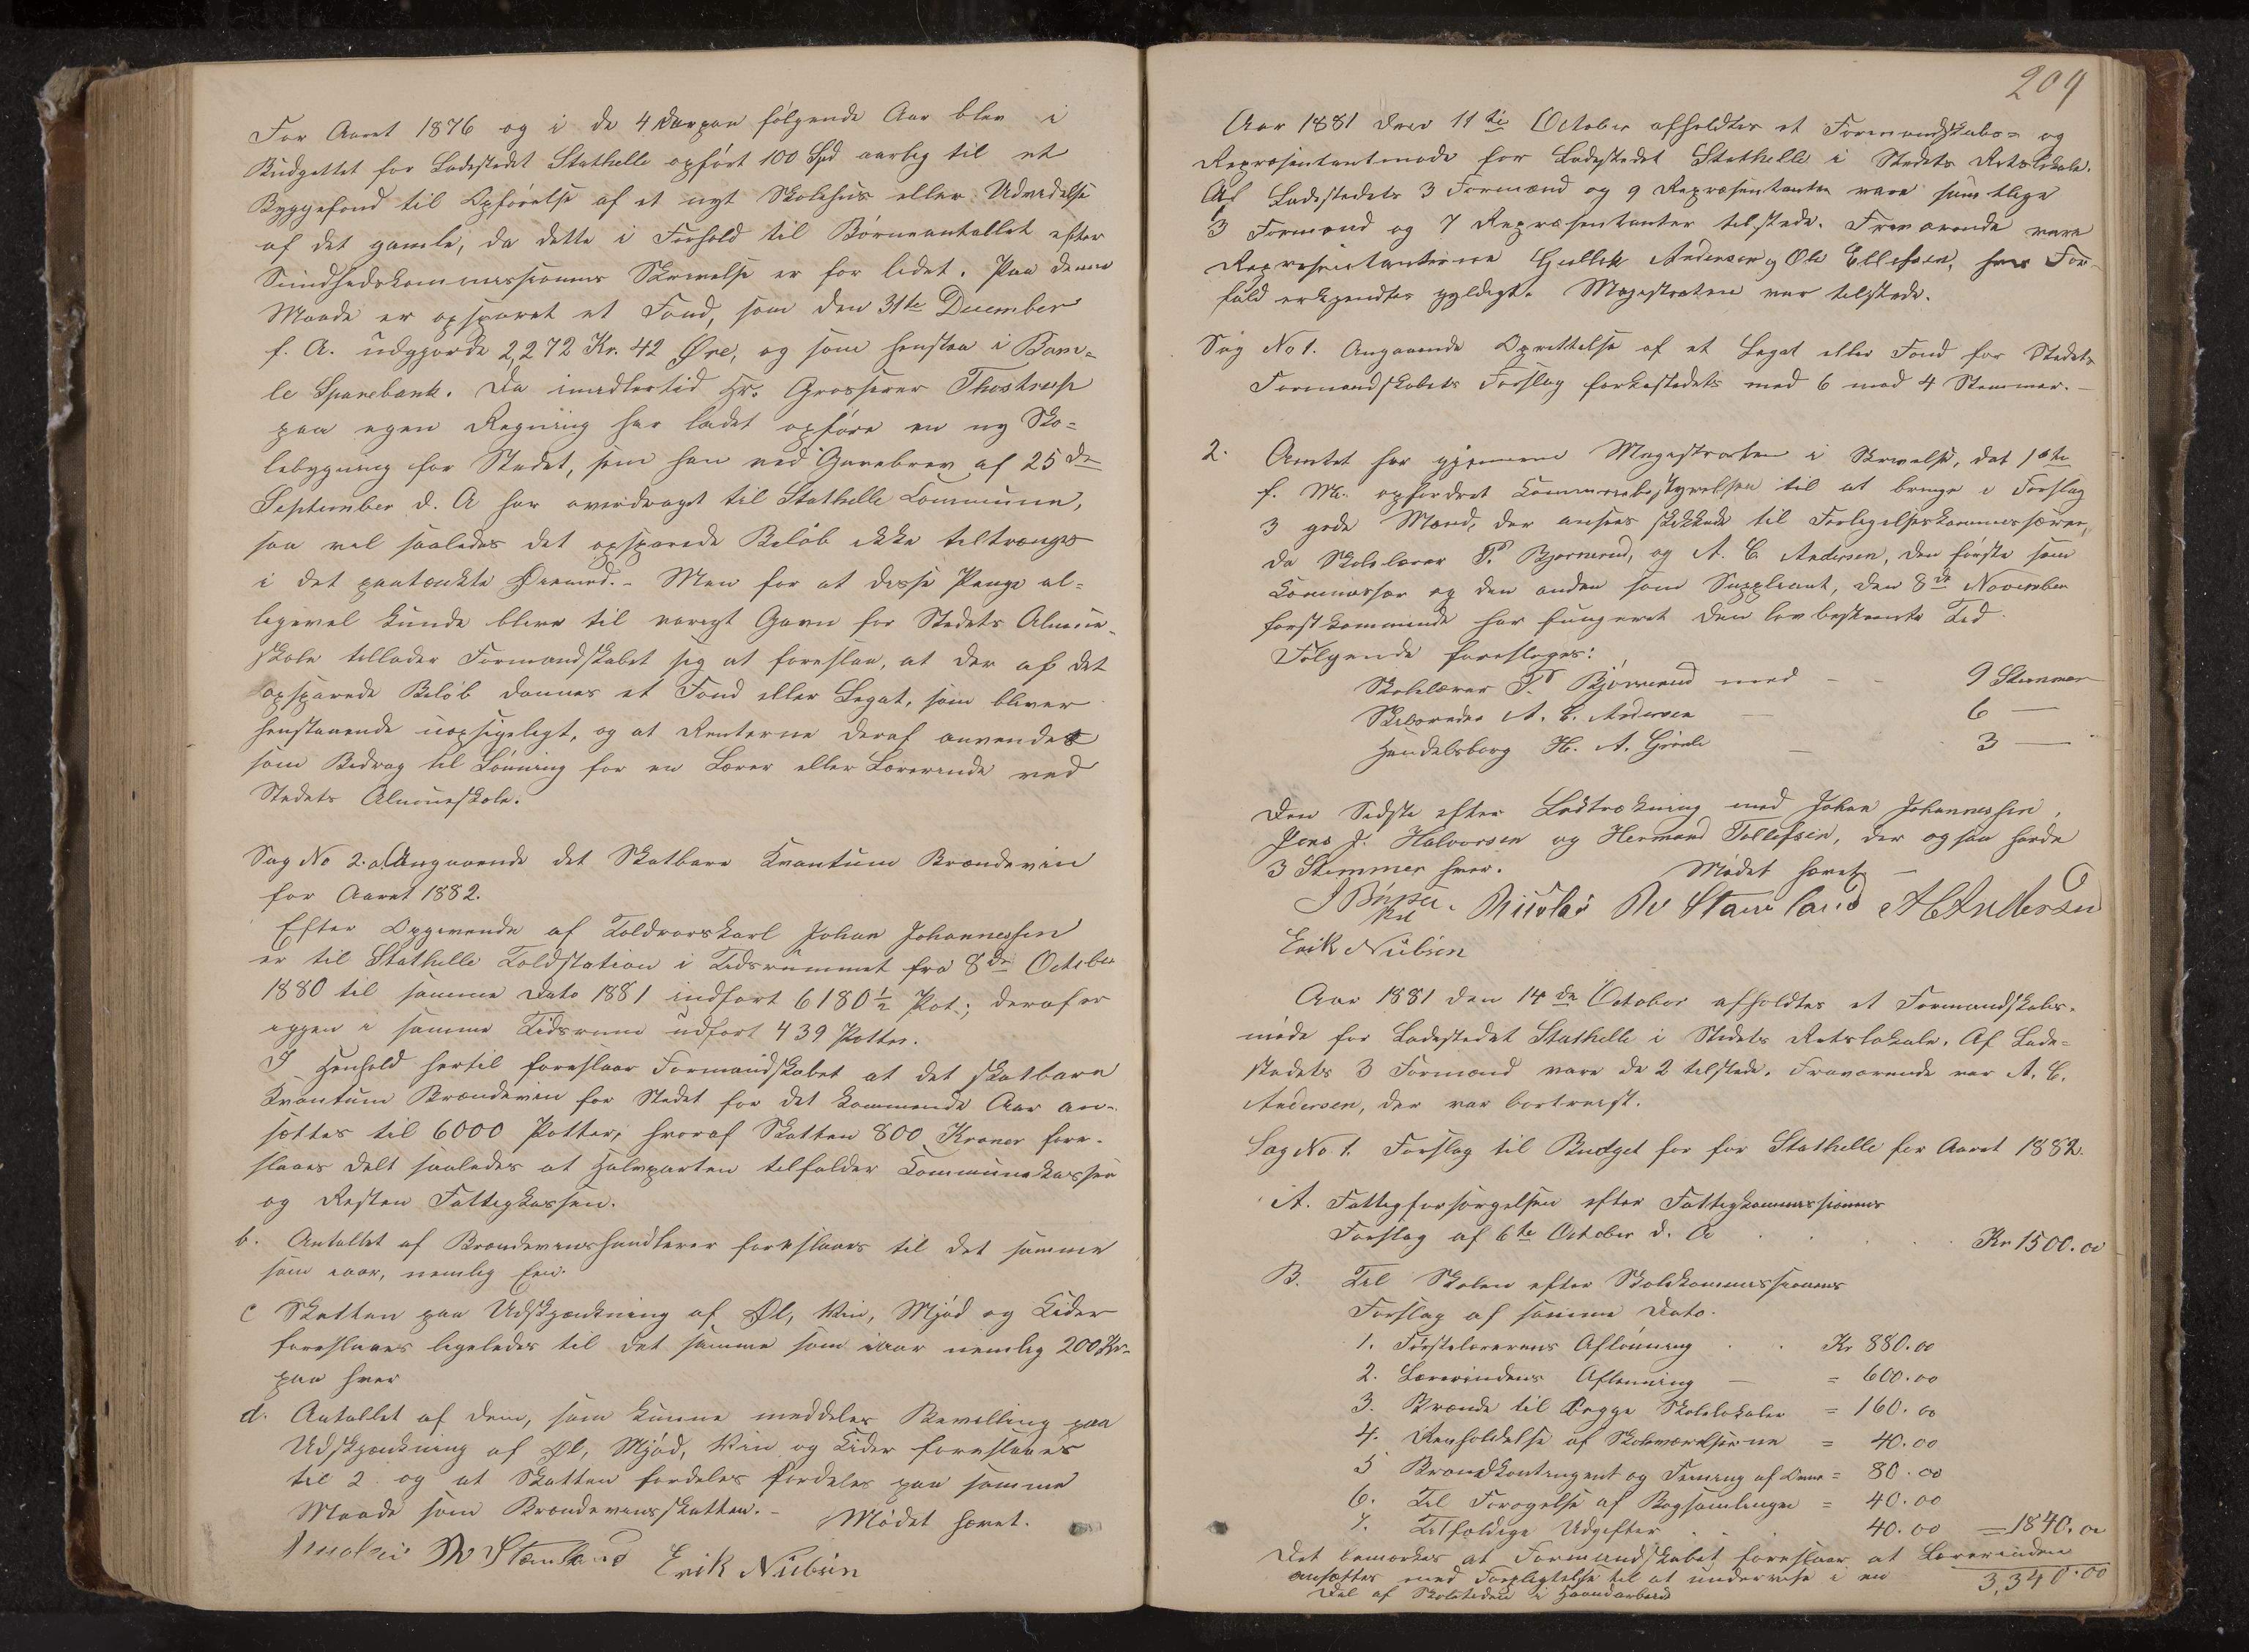 For Aaret 1876 og i de 4 derpaa følgende Aar blev i
Budgettet for Ladestedet Stathelle opført 100 Spd aarlig til et
Byggefond til Opførelse af et nyt Skolehus eller Udvidelse
af det gamle, da dette i Forhold til Børneantallet efter
Sundhedskommissionens Skrivelse er for lidet. Paa denne
Maade er opsparet et Fond, som den 31te December
f. A. udgjorde 2,272 Kr. 42 Øre, og som henstaa i Bam-
le Sparebank. Da imidlertid Hr. Grosserer Thostrup
paa egen Regning har ladet opføre en ny Sko-
lebygning for Stedet, som han ved Gavebrev af 25de
September d. A har overdraget til Stathelle Commune,
saa vel saaledes det opsparede Beløb ikke tiltrænges
i det paatænkte Øiemed. - Men for at disse Penge al-
ligevel kunde blive til varigt Gavn for Stedets Almue-
skole tillader Formandskabet sig at foreslaa, at der af det
opsparede Beløb dannes et Fond eller Legat, som bliver
henstaaende uopsigeligt, og at Renterne deraf anvendes
som Bidrag til Lønning for en Lærer eller Lærerinde ved
Stedets Almueskole.
Sag No 2.a. Angaaende det Skatbare Kvantum Brændeviin
for Aaret 1882.
Efter Opgivende af Toldrorskarl Johan Johannessen
er til Stathelle Toldstation i Tidsrummet fra 8de October
1880 til samme Dato 1881 indført 6180 1/2 Pot; deraf er
igjen i samme Tidsrum udført 439 Potter.
I Henhold hertil foreslaar Formandskabet at det skatbare
Kvantum Brændeviin for Stedet for det kommende Aar an-
sættes til 6000 Potter, hvoraf Skatten 800 Kroner fore-
slaaes delt saaledes at Halvparten tilfalder Communekassen
og Resten Fattigkassen.
b. Antallet af Brændevinshandlerer foreslaaes til det samme
som iaar, nemlig Een.
c Skatten paa Udskjænkning af Øl, Vin, Mjød og Cider
foreslaaes ligeledes til det samme som iaar nemlig 200 Kr.
paa hver
d. Antallet af dem, som kunne meddeles Bevilling paa
Udskjænkning af Øl, Mjød, Vin og Cider foreslaaes
til 2 og at Skatten fordeles fordeles paa samme
Maade som Brændevinsskatten. - Mødet hævet.
Erik Nielsen
209
Aar 1881 den 11te October afholdtes et Formandskabs- og
Repræsentantmøde for Ladestedet Stathelle i Stedets Retslokale.
Af Ladestedets 3 Formænd og 9 Repræsentanter vare samtlige
3 Formænd og 7 Repræsentanter tilstede. Fraværende vare
Repræsentanterne Gullik Andersen og Ole Ellefsen, hvis For-
fald erkjendtes gyldigt. Magistraten var tilstede.
Sag No 1. Angaaende Oprettelse af et Legat eller Fond for Stedets
Formandskabets Forslag forkastedets med 6 mod 4 Stemmer. -
2. Amtet har gjennem Magistraten i Skrivelse, dat 16te
f. M. opfordret Kommunebestyrelsen til at bringe i Forslag
3 gode Mænd, der ansees skikkede til Forligelseskommissærer,
da Skolelærer Bjørnerud, og A. C. Andersen, den første som
Kommissær og den anden som Suppleant, den 8de November
førstkommende har fungeret den lovbestemte Tid.
Følgende foresloges:
Skolelærer Bjørnerud med - - 9 Stemmer
Skibsreder A. C. Andersen — 6 —
Handelsborg H. A. — 3 —
Den Sidste efter Lodtrækning med Johan Johannessen,
Jens J. Halvorsen og Hermand Tollefsen, der ogsaa havde
3 Stemmer hver. Mødet hævet —
A C Andersen
Erik Nielsen
Aar 1881 den 14de October afholdtes et Formandskabs-
møde for Ladestedet Stathelle i Stedets Retslokale. Af Lade-
stedets 3 Formænd vare de 2 tilstede. Fraværende var A. C.
Andersen, der var bortreist.
Sag No 1. Forslag til Budget for for Stathelle for Aaret 1882.
A. Fattigforsørgelsen efter Fattigkommissionens
Forslag af 6te October d. A . . . . Kr 1500.00
B. Til Skolen efter Skolekommissionens
Forslag af samme Dato.
1. Førstelærerens Aflønning . . Kr 880.00
2. Lærerindens Aflønning — = 600.00
3. Brænde til begge Skolelokaler = 160.00
4. Renholdelse af Skoleværelserne = 40.00
5 Brandkontingent og Feining af Ovne = 80.00
6. Til Forøgelse af Bogsamlingen = 40.00
7. Tilfældige Udgifter . . 40.00 = 1840.00
Det bemærkes at Formandskabet foreslaar at Lærerinden
ansættes med Forpligtelse til at undervise i en 3,340.00
Del af Skoletiden i Haandarbeid